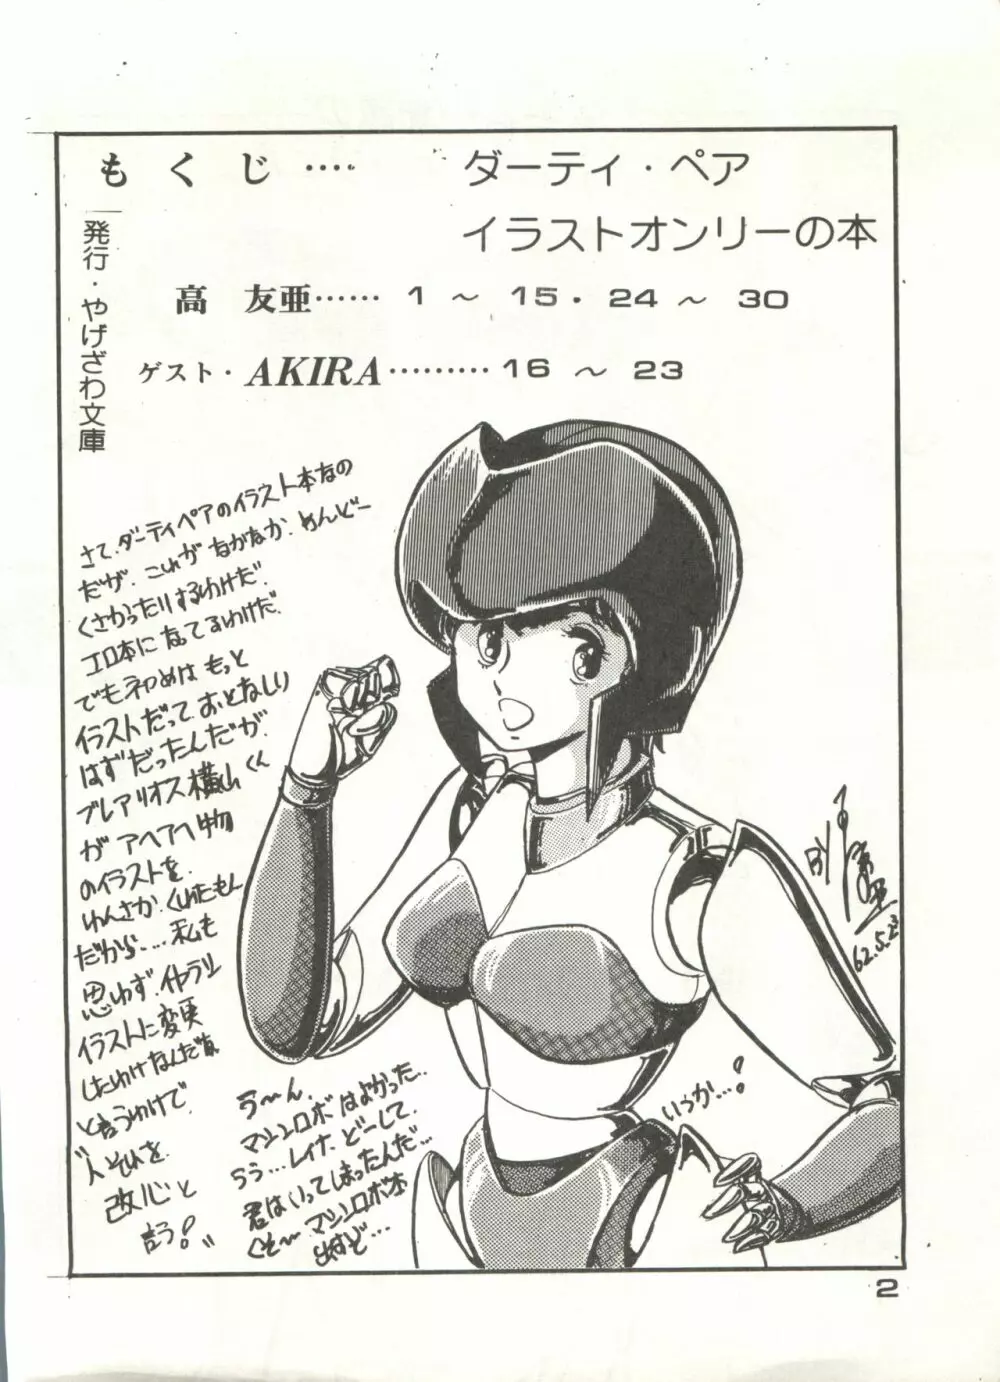 もくじ‥‥
ダーティ・ペア
イラストオンリーの本
発行・やげざわ文庫
高 友亜…… 1 〜 15・24 〜 30
ゲスト・AKIRA……… 16 〜 23
さて、ダーティペアのイラスト本なの
だが、これがなかなか、めんどー
くさかったりするわけだ。
エロ本になってるわけだ。
でもネ初めはもっと
イラストだって おとなしい
はずだったんだが、
ブレアリオス横山くん
がアヘアヘ物
のイラストを、
わんさか、くれたもん
だから‥‥私も
思わず、イヤラシー
イラストに変更
したわけなんだな
と言うわけで、
"人それを
改心と
言う!"
う〜ん、
マシンロボはよかった‥
うう…レイナ、どーして、
君はいってしまったんだ…
くそ〜マシンロボ本
出すぞ…
いつか…!
BY 高友亜
62.5.23
2